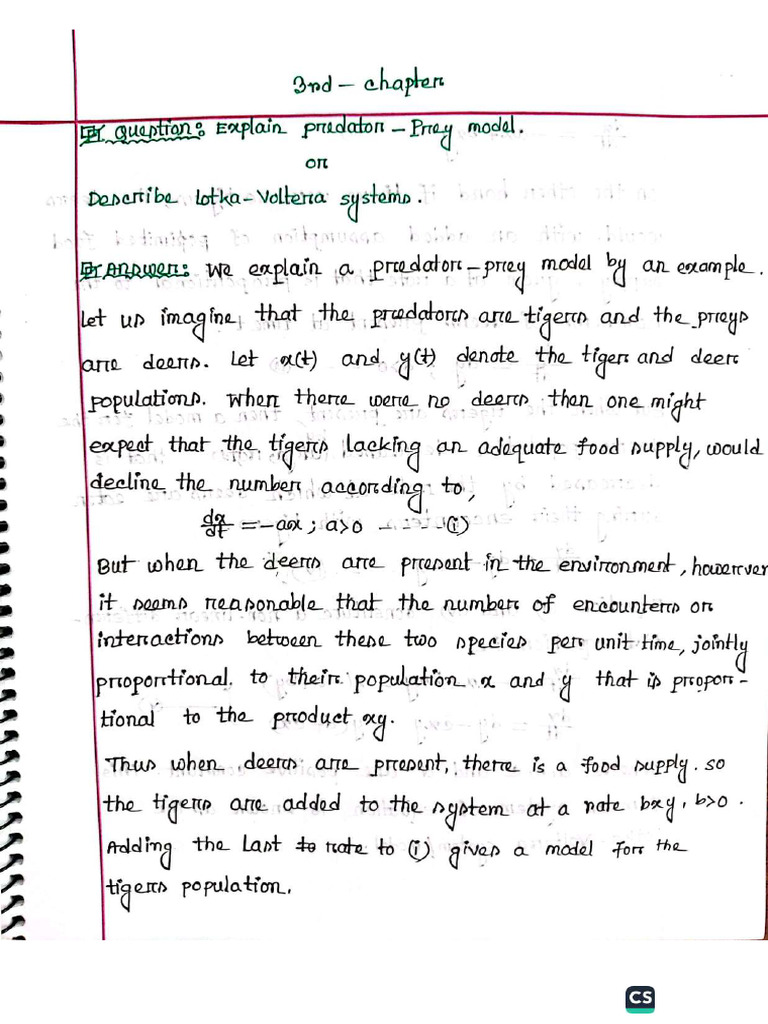 3rd - chapter
Question: Explain predator - Prey model.
or
Describe Lotka-Volterra systems.
Answer: We explain a predator-prey model by an example.
Let us imagine that the predators are tigers and the preys
are deers. Let x(t) and y(t) denote the tiger and deer
populations. When there were no deers then one might
expect that the tigers lacking an adequate food supply, would
decline the number according to,
dx/dt = -ax ; a>0 ----- (i)
But when the deers are present in the environment, however
it seems reasonable that the number of encounters or
interactions between these two species per unit time, jointly
proportional to their population x and y that is propor-
tional to the product xy.
Thus when deers are present, there is a food supply. so
the tigers are added to the system at a rate bxy, b>0.
Adding the last rate to (i) gives a model for the
tigers population.
CS